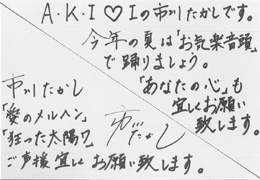 A・K・I♡Iの市川たかしです。
今年の夏は「お気楽音頭」
で踊りましょう。
「あなたの心」も
宜しくお願い
致します。
市川たかし
「愛のメルヘン」
「狂った太陽」
ご声援宜しくお願い致します。
市川たかし